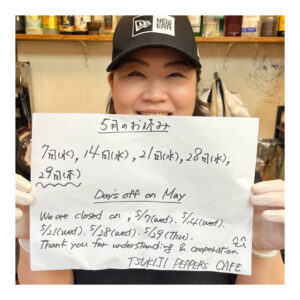 NEW ERA
5月のお休み
7日(水), 14日(水), 21日(水), 28日(水),
29日(木)
Day's off on May
We are closed on ; 5/7(wed). 5/14(wed).
5/21(wed). 5/28(wed). 5/29(Thu).
Thank you for understanding & cooperation
TSUKIJI PEPPER'S CAFE